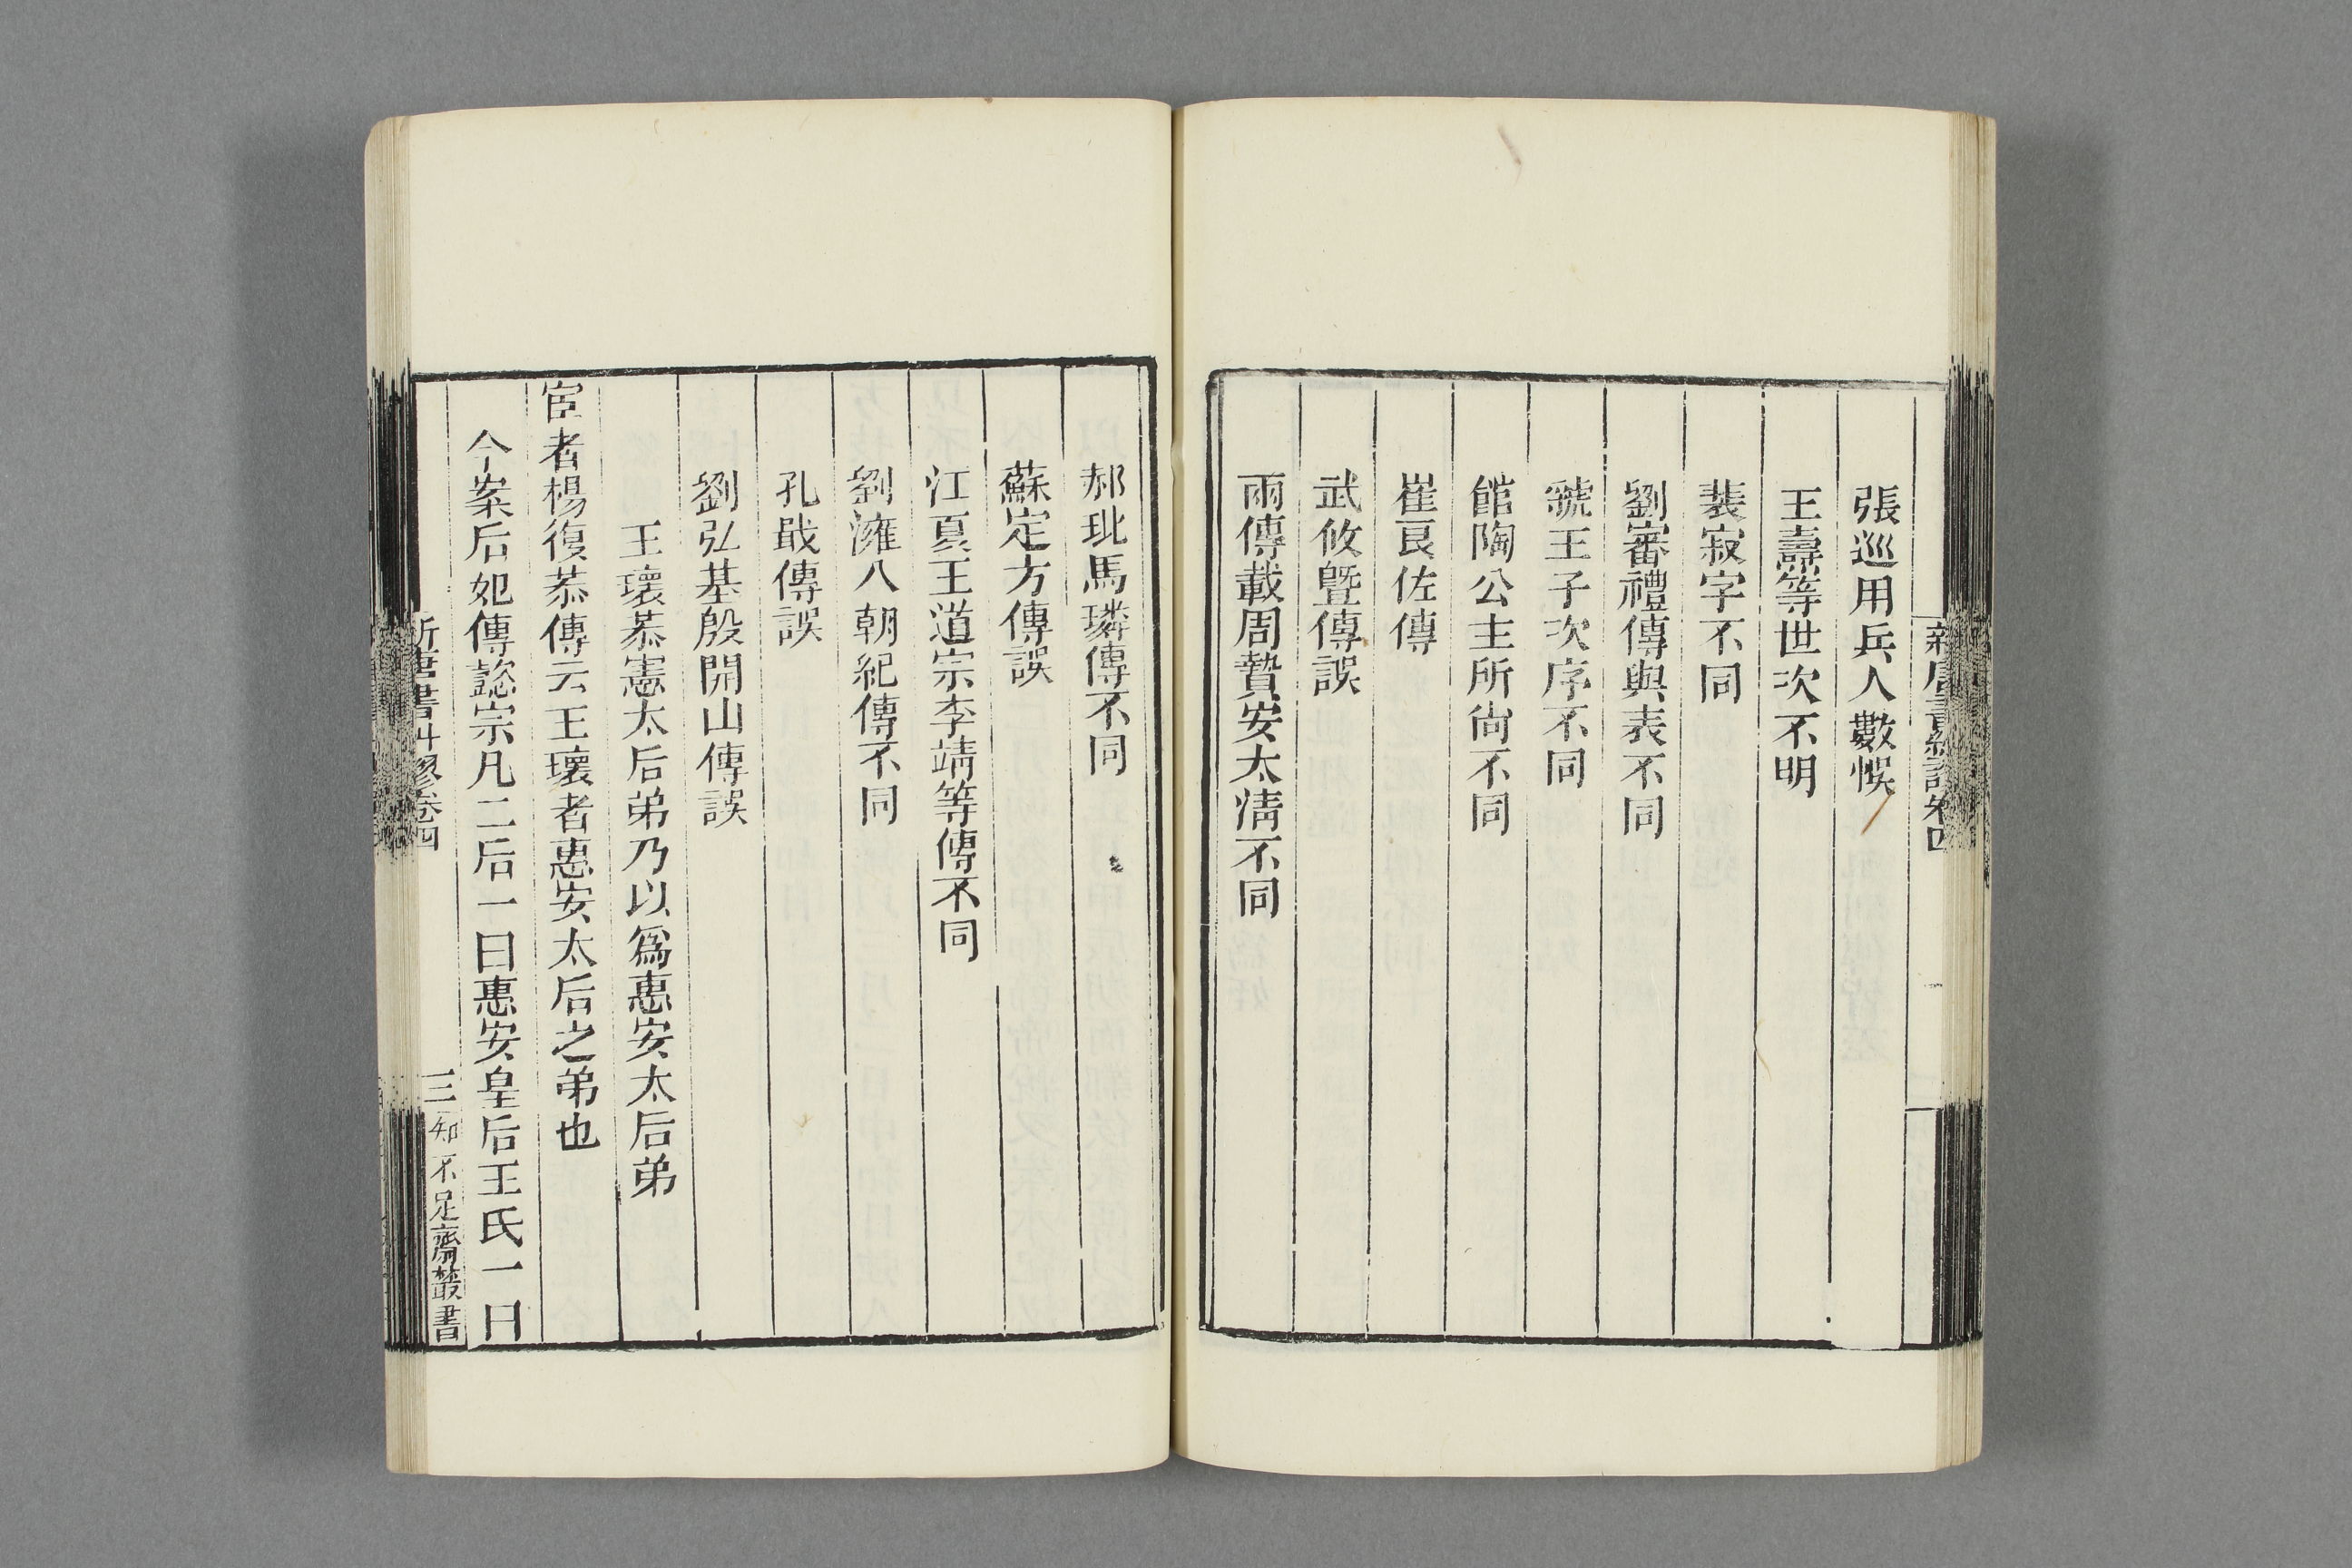 新唐書糾謬卷四
張巡用兵人數悞
王壽等世次不明
裴寂字不同
劉審禮傳與表不同
虢王子次序不同
館陶公主所尙不同
崔良佐傳
武攸曁傳誤
兩傳載周贄安太淸不同
郝玼馬璘傳不同
蘇定方傳誤
江夏王道宗李靖等傳不同
劉澭八朝紀傳不同
孔戢傳誤
劉弘基殷開山傳誤
王瓌恭憲太后弟乃以爲惠安太后弟
宦者楊復恭傳云王瓌者惠安太后之弟也
今案后妃傳懿宗凡二后一曰惠安皇后王氏一曰
新唐書糾謬卷四
三
知不足齋叢書